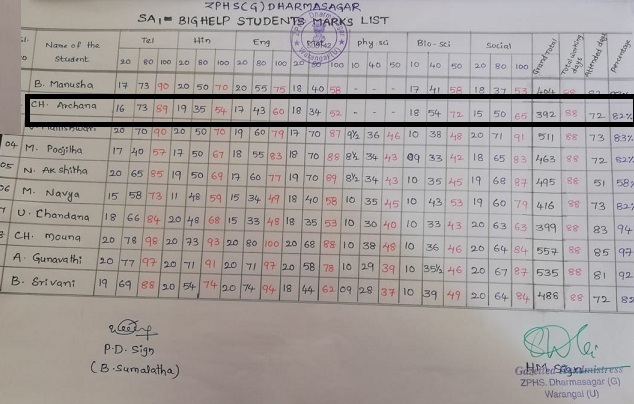 ZPHS(G) DHARMASAGAR
SA1 = BIGHELP STUDENTS MARKS LIST
Name of the Student Tel Hin Eng Maths phy.sci Bio-sci Social Grand Total Total working days Attended days percentage
20 80 100 20 50 100 20 80 100 20 80 100 10 40 50 10 40 50 20 80 100
B. Manusha 17 73 90 20 50 70 20 55 75 18 40 58 - - - 17 41 58 18 37 53 404 88
CH. Archana 16 73 89 19 35 54 17 43 60 18 34 52 - - - 18 54 72 15 50 65 392 88 72 82%
20 70 90 20 50 70 19 60 79 17 70 87 9½ 36 46 10 38 48 20 71 91 511 88 73 83%
04 M. Poojitha 17 40 57 17 50 67 18 55 83 18 70 88 8½ 34 43 09 33 42 18 65 83 463 88 72 82%
05 N. Akshitha 20 65 85 19 50 69 17 60 77 19 70 89 8½ 34 43 10 35 45 19 68 87 495 88 51 58%
06 M. Navya 15 58 73 11 48 59 15 34 49 18 40 58 10 35 45 10 43 53 19 60 79 416 88 73 82%
U. Chandana 18 66 84 20 48 68 15 33 48 18 35 53 10 30 40 10 33 43 20 63 63 399 88 83 94
CH. Mouna 20 78 98 20 73 93 20 80 100 20 68 88 10 38 48 10 36 46 20 64 84 557 88 85 97
A. Gunavathi 20 77 97 20 71 91 20 71 97 20 58 78 10 29 39 10 35½ 46 20 67 87 535 88 81 92
B. Srivani 19 69 88 20 54 74 20 74 94 18 44 62 09 28 37 10 39 49 20 64 84 488 88 72 82
P.D. Sign
(B. Sumalatha)
HM Sign
Gazetted Headmistress
ZPHS. Dharmasagar (G)
Warangal (U)